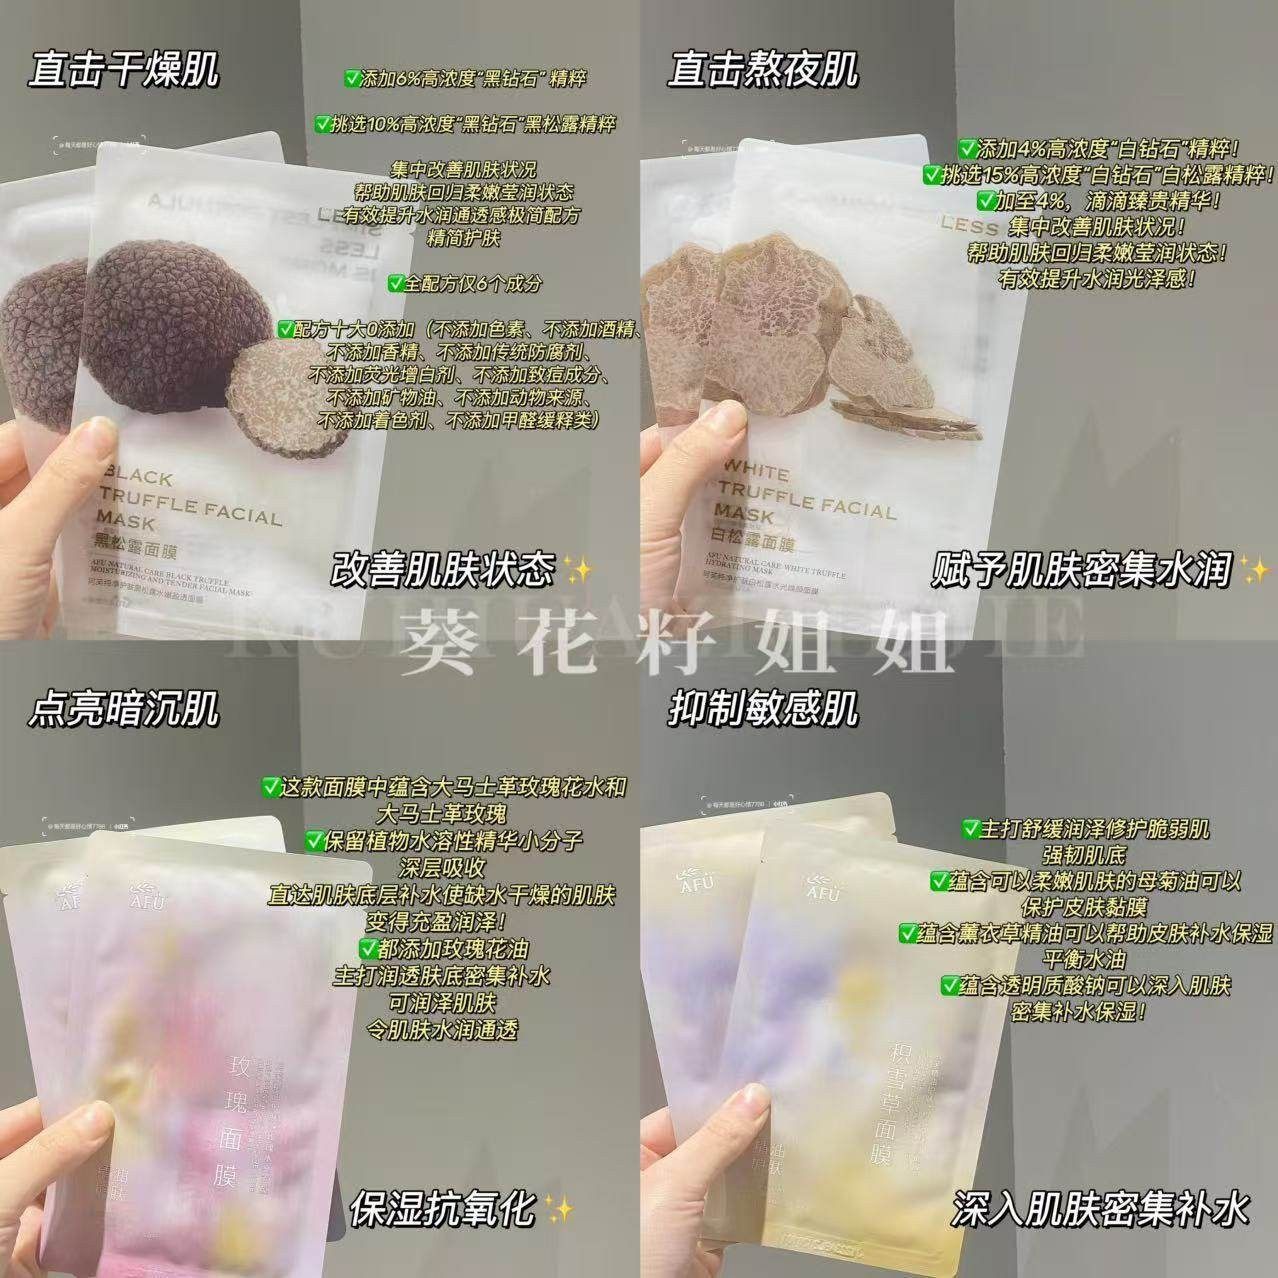 直击干燥肌
✅添加6%高浓度“黑钻石”精粹
✅挑选10%高浓度“黑钻石”黑松露精粹
集中改善肌肤状况
帮助肌肤回归柔嫩莹润状态
有效提升水润通透感极简配方
精简护肤
✅全配方仅6个成分
✅配方十大0添加（不添加色素、不添加酒精、
不添加香精、不添加传统防腐剂、
不添加荧光增白剂、不添加致痘成分、
不添加矿物油、不添加动物来源、
不添加着色剂、不添加甲醛缓释类）
LESS
BLACK
TRUFFLE FACIAL
MASK
黑松露面膜
AFU NATURAL CARE BLACK TRUFFLE
MOISTURIZING AND TENDER FACIAL MASK
改善肌肤状态✨
直击熬夜肌
✅添加4%高浓度“白钻石”精粹！
✅挑选15%高浓度“白钻石”白松露精粹！
✅加至4%，滴滴臻贵精华！
集中改善肌肤状况！
帮助肌肤回归柔嫩莹润状态！
有效提升水润光泽感！
LESS
WHITE
TRUFFLE FACIAL
MASK
白松露面膜
AFU NATURAL CARE WHITE TRUFFLE
HYDRATING MASK
赋予肌肤密集水润✨
葵花籽姐姐
点亮暗沉肌
✅这款面膜中蕴含大马士革玫瑰花水和
大马士革玫瑰
✅保留植物水溶性精华小分子
深层吸收
直达肌肤底层补水使缺水干燥的肌肤
变得充盈润泽！
✅都添加玫瑰花油
主打润透肤底密集补水
可润泽肌肤
令肌肤水润通透
AFU
玫瑰面膜
保湿抗氧化✨
抑制敏感肌
✅主打舒缓润泽修护脆弱肌
强韧肌底
✅蕴含可以柔嫩肌肤的母菊油可以
保护皮肤黏膜
✅蕴含薰衣草精油可以帮助皮肤补水保湿
平衡水油
✅蕴含透明质酸钠可以深入肌肤
密集补水保湿！
AFU
AFU
积雪草面膜
深入肌肤密集补水